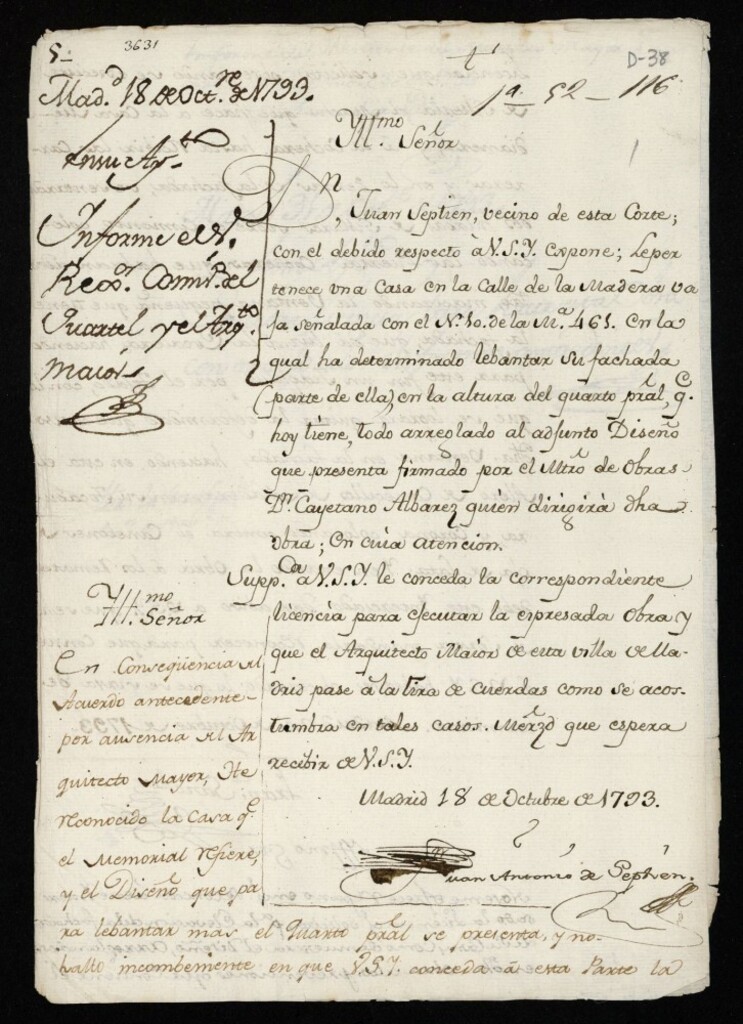 5_
3631
D-38
Mad.d 18 de Oct.re de 1793.
1a 52 - 116
Yll.mo Señor
1
En su Ay.to
Informe el S.
Rexo.r Comis.o del
Quartel y el Arq.to
maior
Dn Juan Septien, vecino de esta Corte;
con el debido respecto à V.S.Y. expone; Le per
tenece vna Casa en la Calle de la Madera va
ja señalada con el N.10. de la M.a 461. en la
qual ha determinado lebantar su fachada
(parte de ella) en la altura del quarto pral, q.e
hoy tiene, todo arreglado al adjunto Diseño
que presenta firmado por el Mtro de Obras
Dn. Cayetano Albarez quien dirigirá dha
obra; En cuia atencion.
Supp.ca a V.S.Y. le conceda la correspondiente
licencia para ejecutar la espresada Obra y
que el Arquitecto Maior de esta villa de Ma-
drid pase à la tira de cuerdas como se acos-
tumbra en tales casos. Merzd que espera
recibir de V.S.Y.
Madrid 18 de Octubre de 1793.
Juan Antonio de Septien.
Yll.mo Señor
En Conseqüencia del
Acuerdo antecedente
por ausencia del Ar
quitecto Mayor, He
reconocido la Casa q.e
el Memorial refiere,
y el Diseño que pa
ra lebantar mas el Quarto pral se presenta, y no
hallo incombeniente en que V.S.Y. conceda à esta Parte la